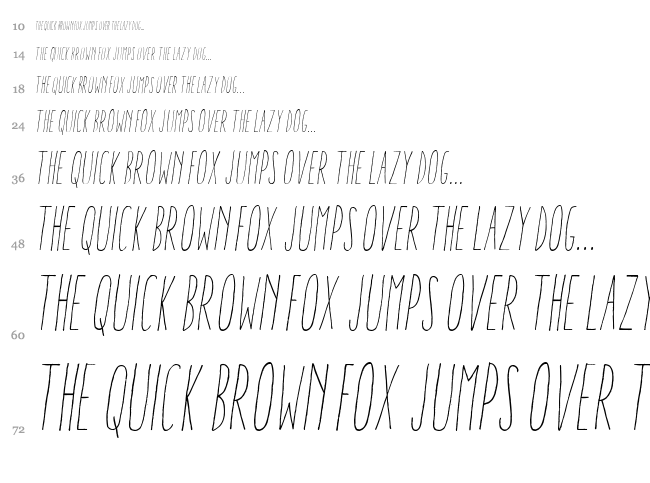 10 THE QUICK BROWN FOX JUMPS OVER THE LAZY DOG...
14 THE QUICK BROWN FOX JUMPS OVER THE LAZY DOG...
18 THE QUICK BROWN FOX JUMPS OVER THE LAZY DOG...
24 THE QUICK BROWN FOX JUMPS OVER THE LAZY DOG...
36 THE QUICK BROWN FOX JUMPS OVER THE LAZY DOG...
48 THE QUICK BROWN FOX JUMPS OVER THE LAZY DOG...
60 THE QUICK BROWN FOX JUMPS OVER THE LAZY
72 THE QUICK BROWN FOX JUMPS OVER T